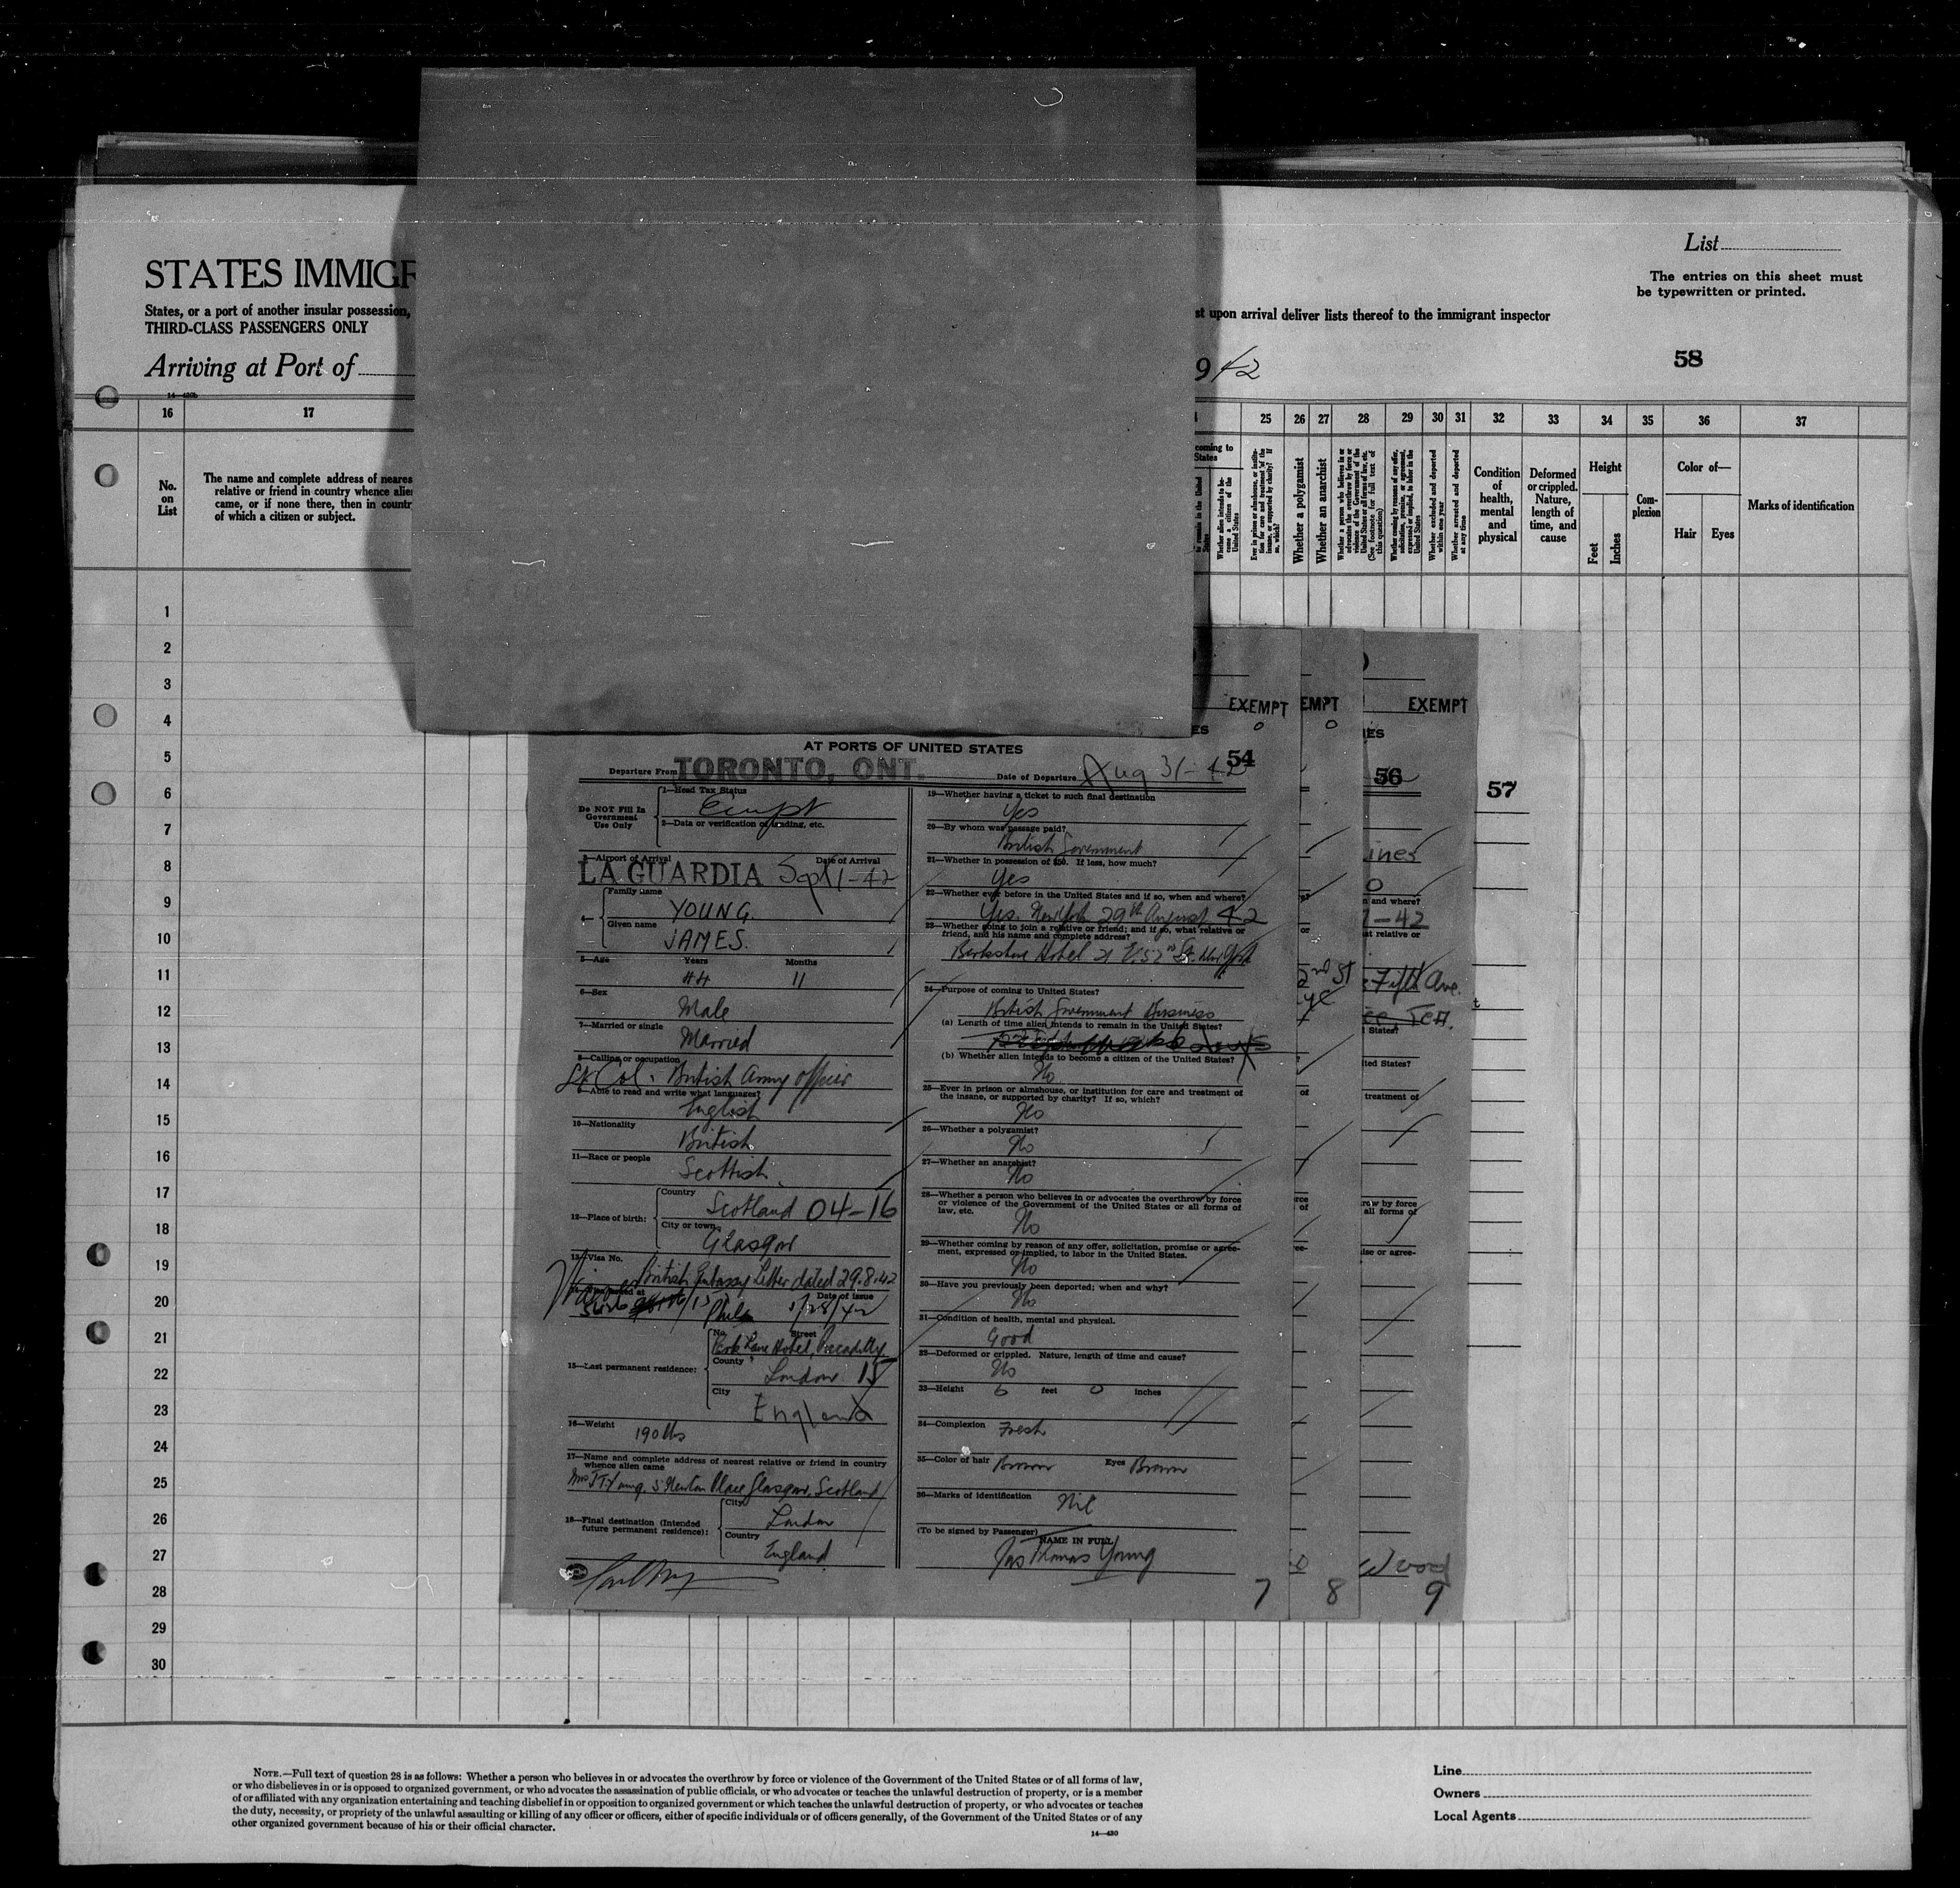 List
The entries on this sheet must
be typewritten or printed.
STATES IMMIGR
States, or a port of another insular possession,
THIRD-CLASS PASSENGERS ONLY
st upon arrival deliver lists thereof to the immigrant inspector
Arriving at Port of
942
58
14—430b
16 17 25 26 27 28 29 30 31 32 33 34 35 36 37
No.
on
List
The name and complete address of neares
relative or friend in country whence alien
came, or if none there, then in countr
of which a citizen or subject.
coming to
States
Whether alien intends to become a citizen of the United States
Ever in prison or almshouse, or institution for care and treatment of the insane, or supported by charity? If so, which?
Whether a polygamist
Whether an anarchist
Whether a person who believes in or advocates the overthrow by force or violence of the Government of the United States or all forms of law, etc. (See footnote for full text of this question)
Whether coming by reasons of any offer, solicitation, promise, or agreement, expressed or implied, to labor in the United States
Whether excluded and deported within one year
Whether arrested and deported at any time
Condition
of
health,
mental
and
physical
Deformed
or crippled.
Nature,
length of
time, and
cause
Height
Feet
Inches
Com-
plexion
Color of—
Hair Eyes
Marks of identification
1
2
3
4
5
6
7
8
9
10
11
12
13
14
15
16
17
18
19
20
21
22
23
24
25
26
27
28
29
30
EXEMPT
AT PORTS OF UNITED STATES
54
Departure From TORONTO, ONT. Date of Departure Aug 31-42
Do NOT Fill In
Government
Use Only
1—Head Tax Status
Exempt
2—Data or verification of landing, etc.
3—Airport of Arrival Date of Arrival
LA GUARDIA Sept 1-42
4— Family name
YOUNG.
Given name
JAMES.
5—Age Years Months
44 11
6—Sex
Male
7—Married or single
Married
8—Calling or occupation
Lt Col. British Army officer
9—Able to read and write what languages?
English
10—Nationality
British
11—Race or people
Scottish.
12—Place of birth: Country
Scotland 04-16
City or town
Glasgow
13—Visa No.
British Embassy Letter dated 29.8.42
Date of issue
Phila 1/28/42
15—Last permanent residence: No. Street
Park Lane Hotel, Piccadilly
County
London 15
City
England
16—Weight
190 lbs
17—Name and complete address of nearest relative or friend in country
whence alien came
Mrs J.T. Young. 5 Newton Place Glasgow, Scotland
18—Final destination (Intended
future permanent residence): City
London
Country
England
19—Whether having a ticket to such final destination
Yes
20—By whom was passage paid?
British Government
21—Whether in possession of $50. If less, how much?
Yes
22—Whether ever before in the United States and if so, when and where?
Yes. New York 29th August 42
23—Whether going to join a relative or friend; and if so, what relative or
friend, and his name and complete address?
Berkshire Hotel 21 E. 52nd St. New York
24—Purpose of coming to United States?
British Government Business
(a) Length of time alien intends to remain in the United States?
(b) Whether alien intends to become a citizen of the United States?
No
25—Ever in prison or almshouse, or institution for care and treatment of
the insane, or supported by charity? If so, which?
No
26—Whether a polygamist?
No
27—Whether an anarchist?
No
28—Whether a person who believes in or advocates the overthrow by force
or violence of the Government of the United States or all forms of
law, etc.
No
29—Whether coming by reason of any offer, solicitation, promise or agree-
ment, expressed or implied, to labor in the United States.
No
30—Have you previously been deported; when and why?
No
31—Condition of health, mental and physical.
Good
32—Deformed or crippled. Nature, length of time and cause?
No
33—Height 6 feet 0 inches
34—Complexion Fresh
35—Color of hair Brown Eyes Brown
36—Marks of identification Nil
(To be signed by Passenger)
NAME IN FULL
Jas Thomas Young
7
EMPT
2nd St
8
EXEMPT
56
ines
n and where?
1-42
at relative or
Fifth Ave.
States?
ited States?
treatment of
row by force
all forms of
ise or agree-
Wood
9
57
NOTE.—Full text of question 28 is as follows: Whether a person who believes in or advocates the overthrow by force or violence of the Government of the United States or of all forms of law,
or who disbelieves in or is opposed to organized government, or who advocates the assassination of public officials, or who advocates or teaches the unlawful destruction of property, or is a member
of or affiliated with any organization entertaining and teaching disbelief in or opposition to organized government or which teaches the unlawful destruction of property, or who advocates or teaches
the duty, necessity, or propriety of the unlawful assaulting or killing of any officer or officers, either of specific individuals or of officers generally, of the Government of the United States or of any
other organized government because of his or their official character.
14—430
Line
Owners
Local Agents